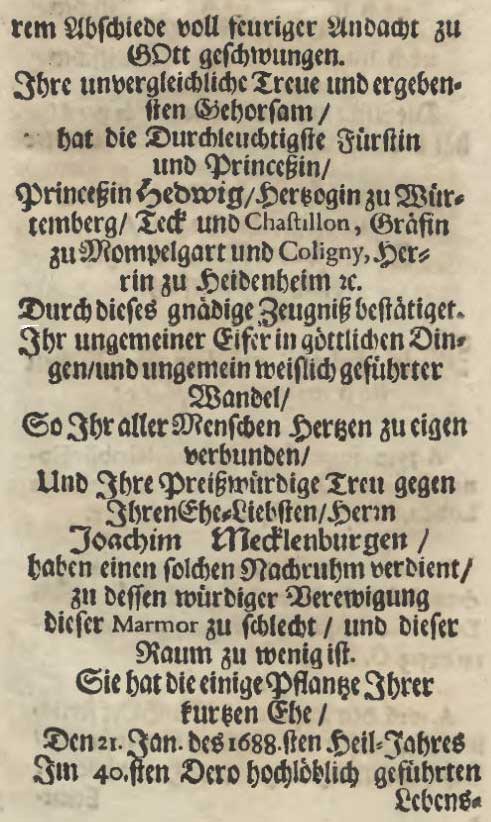 rem Abschiede voll feuriger Andacht zu
GOtt geschwungen.
Ihre unvergleichliche Treue und ergeben-
sten Gehorsam /
hat die Durchleuchtigste Fürstin
und Princeßin/
Princeßin Hedwig/Hertzogin zu Wür-
temberg/ Teck und Chastillon, Gräfin
zu Mompelgart und Coligny, Her-
rin zu Heidenheim ꝛc.
Durch dieses gnädige Zeugniß bestätiget.
Ihr ungemeiner Eifer in göttlichen Din-
gen/und ungemein weislich geführter
Wandel/
So Ihr aller Menschen Hertzen zu eigen
verbunden/
Und Ihre Preißwürdige Treu gegen
Ihren Ehe-Liebsten/Herrn
Joachim Mecklenburgen /
haben einen solchen Nachruhm verdient/
zu dessen würdiger Verewigung
dieser Marmor zu schlecht / und dieser
Raum zu wenig ist.
Sie hat die einige Pflantze Ihrer
kurtzen Ehe /
Den 21. Jan. des 1688.sten Heil-Jahres
Im 40.sten Dero hochlöblich geführten
Lebens-